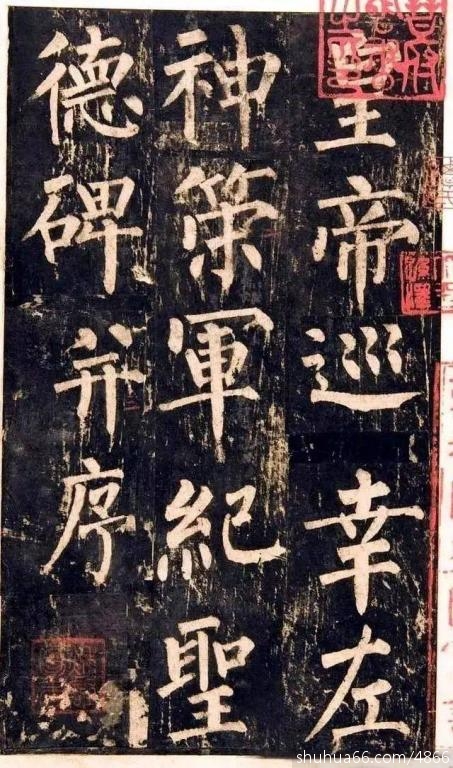 皇帝巡幸左
神策軍紀聖
德碑并序
shuhua66.com/4866